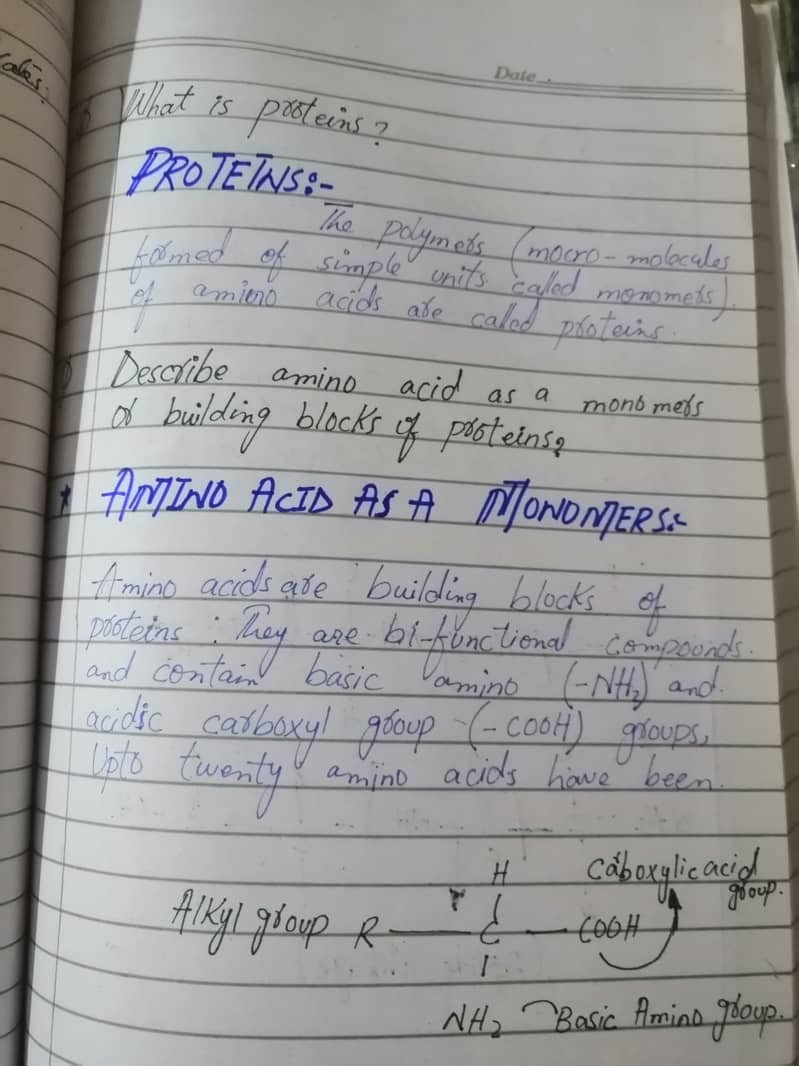 Date
What is proteins?
PROTEINS:-
The polymers (macro-molecules
formed of simple units called monomers)
of amino acids are called proteins.
Describe amino acid as a monomers
or building blocks of proteins?
* AMINO ACID AS A MONOMERS:-
Amino acids are building blocks of
proteins. They are bi-functional compounds.
and contain basic amino (-NH₂) and.
acidic carboxyl group (-COOH) groups,
Upto twenty amino acids have been.
H
Caboxylic acid
group.
Alkyl group R — C — COOH
NH₂ Basic Amino group.